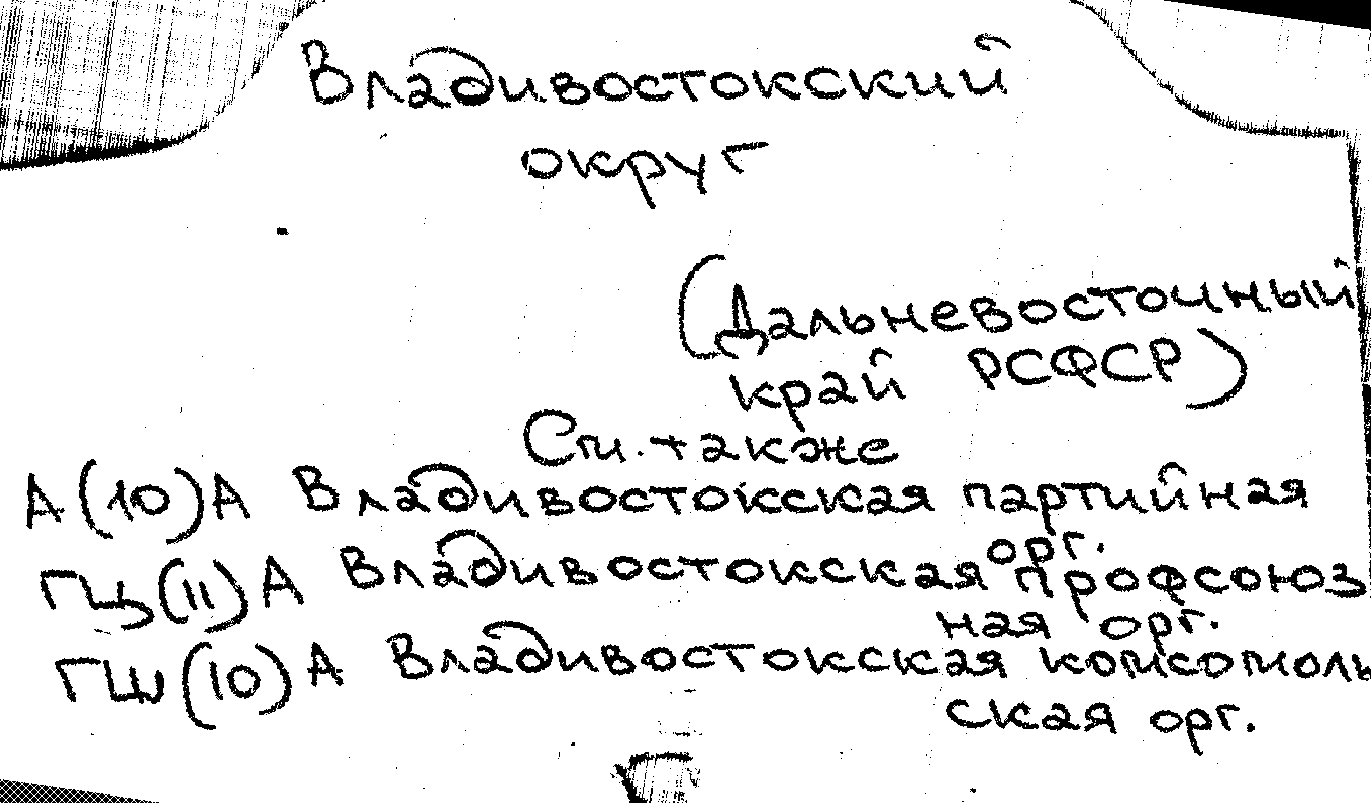 Владивостокский
округ
(Дальневосточный
край РСФСР)
См. также
А(10)А Владивостокская партийная
орг.
ГЦ(11)А Владивостокская профсоюз
ная орг.
ГЩ(10)А Владивостокская комсомоль
ская орг.